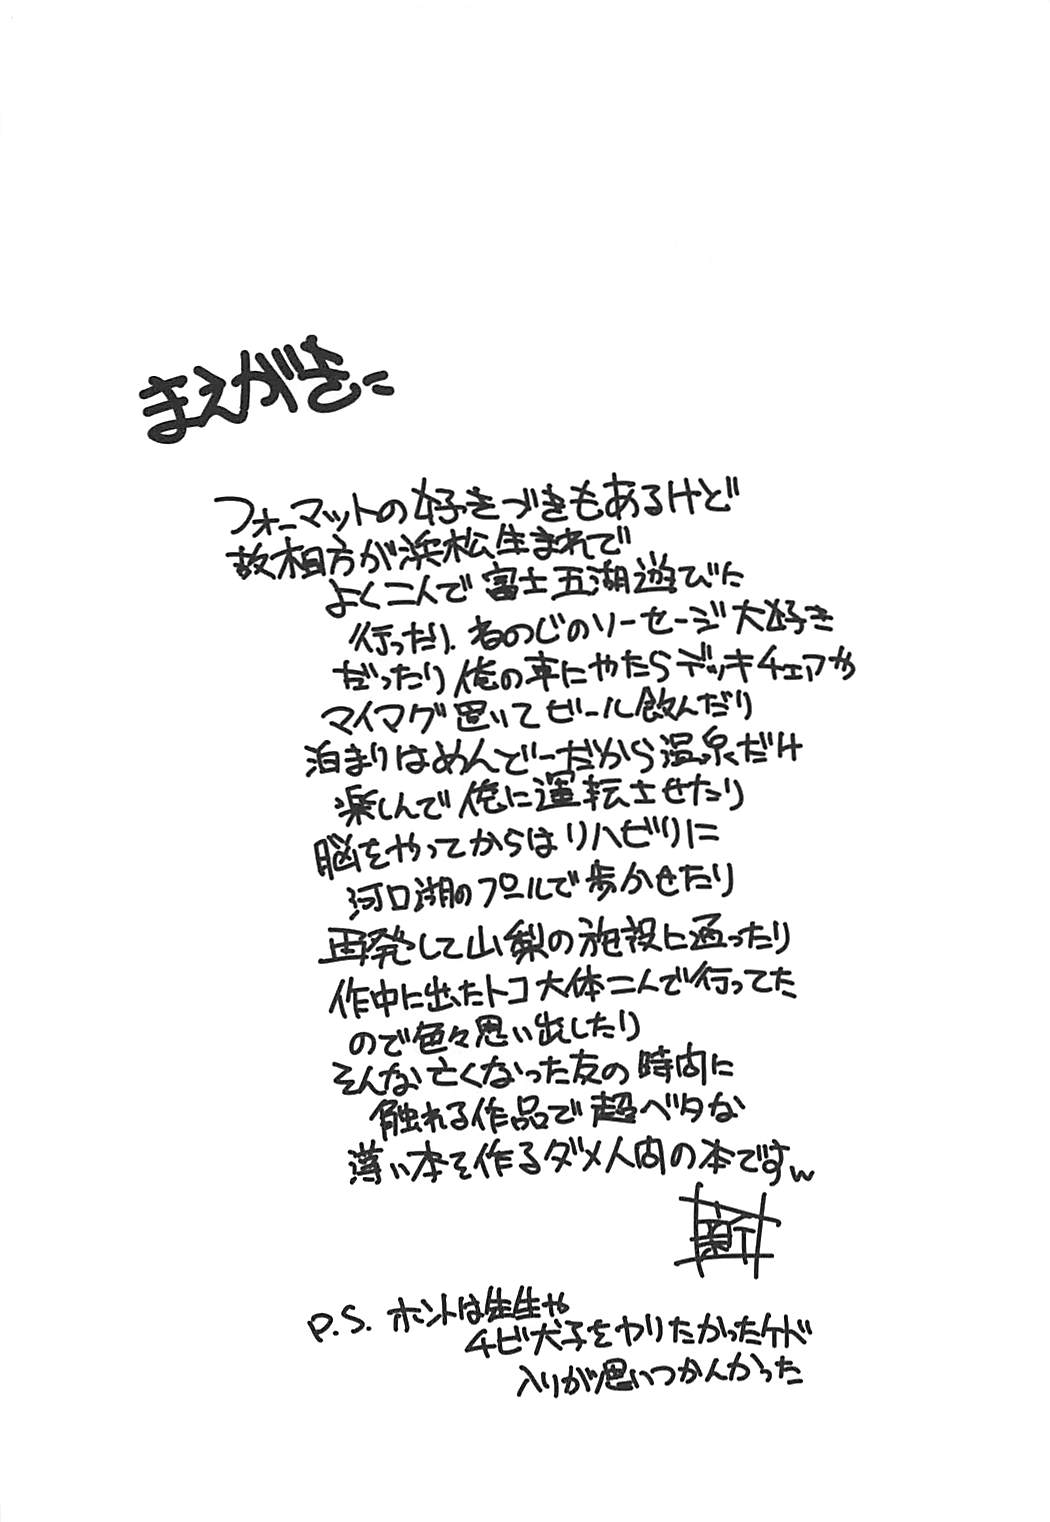 まえがきニ
フォーマットの好きづきもあるけど
故相方が浜松生まれで
よく二人で富士五湖遊びに
行ったり、者のじのソーセージ大好き
だったり俺の車にやたらデッキチェアや
マイマグ置いてビール飲んだり
泊まりはめんどーだから温泉だけ
楽しんで俺に運転させたり
脳をやってからはリハビリに
河口湖のプールで歩かせたり
再発して山梨の施設に通ったり
作中に出たトコ大体二人で行ってた
ので色々思い出したり
そんな亡くなった友の時間に
触れる作品で超ベタな
薄い本を作るダメ人間の本ですw
P.S. ホントは先生や
チビ犬子をやりたかったケド
入りが思いつかんかった